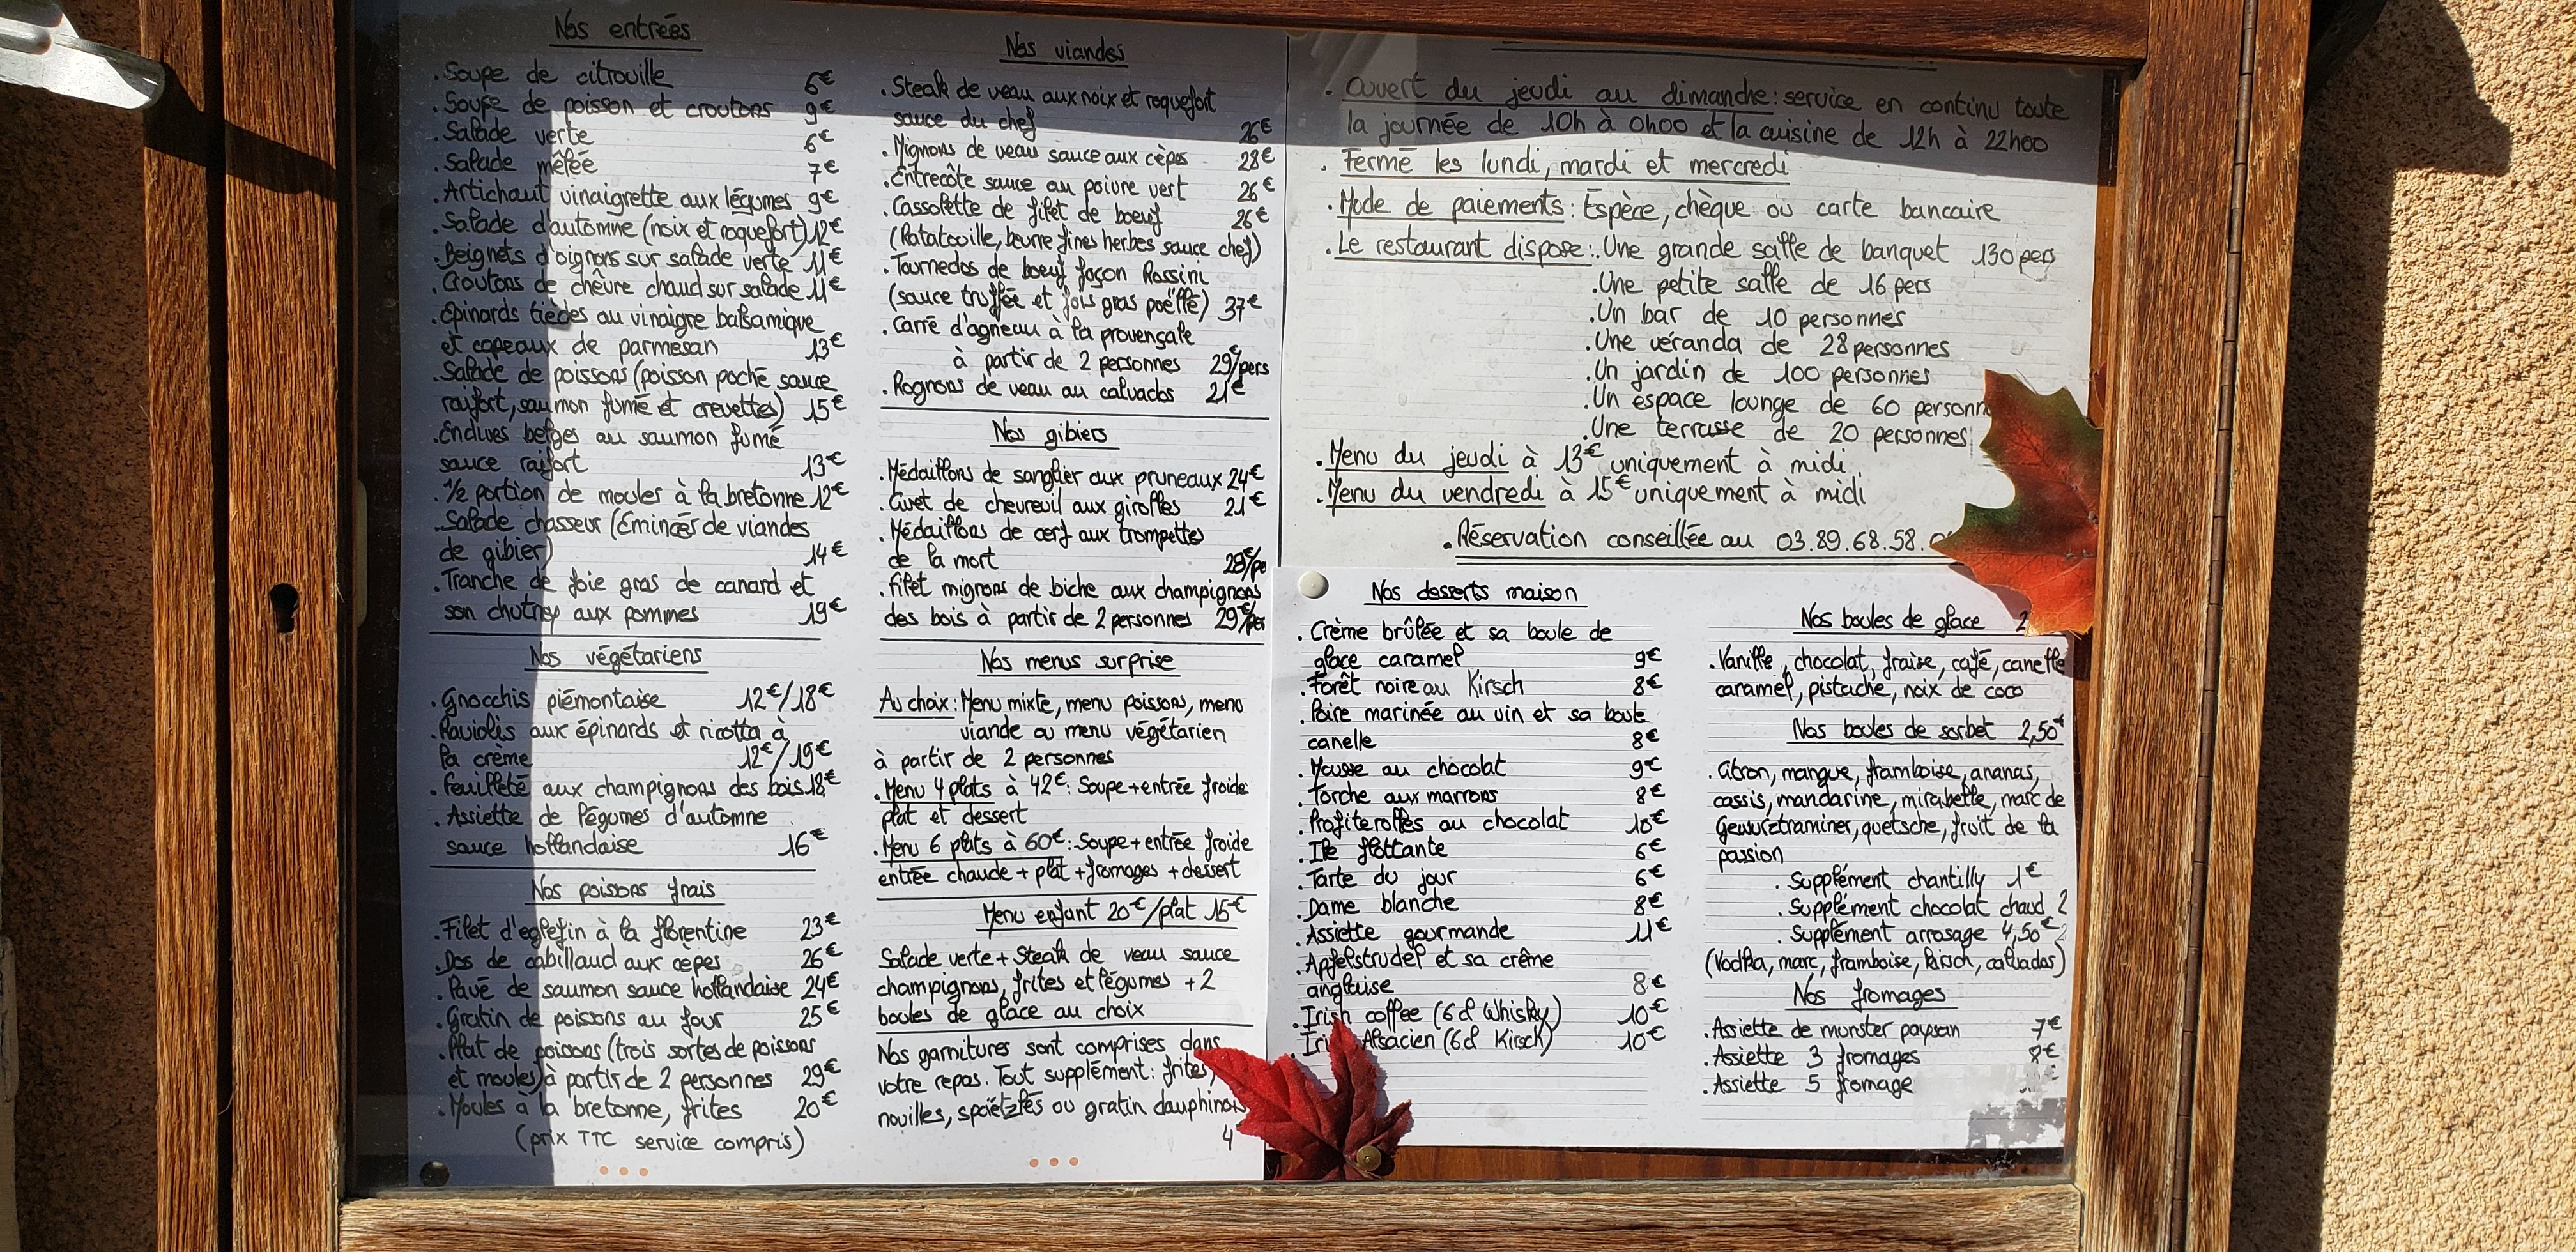 Nos entrées
. Soupe de citrouille 6€
. Soupe de poisson et croutons 9€
. Salade verte 6€
. Salade mêlée 7€
. Artichaut vinaigrette aux légumes 9€
. Salade d'automne (noix et roquefort) 12€
. Beignets d'oignons sur salade verte 11€
. Croutons de chèvre chaud sur salade 11€
. Epinards tièdes au vinaigre balsamique
et copeaux de parmesan 13€
. Salade de poissons (poisson poché sauce
raifort, saumon fumé et crevettes) 15€
. Endives belges au saumon fumé
sauce raifort 13€
. 1/2 portion de moules à la bretonne 12€
. Salade chasseur (Emincés de viandes
de gibier) 14€
. Tranche de foie gras de canard et
son chutney aux pommes 19€
Nos végétariens
. Gnocchis piémontaise 12€/18€
. Raviolis aux épinards et ricotta à
la crème 12€/19€
. Feuilleté aux champignons des bois 18€
. Assiette de légumes d'automne
sauce hollandaise 16€
Nos poissons frais
. Filet d'eglefin à la florentine 23€
. Dos de cabillaud aux cepes 26€
. Pavé de saumon sauce hollandaise 24€
. Gratin de poissons au four 25€
. Plat de poissons (trois sortes de poissons
et moules) à partir de 2 personnes 29€
. Moules à la bretonne, frites 20€
(prix TTC service compris)
Nos viandes
. Steak de veau aux noix et roquefort
sauce du chef 26€
. Mignons de veau sauce aux cèpes 28€
. Entrecôte sauce au poivre vert 26€
. Cassolette de filet de boeuf 26€
(Ratatouille, beurre fines herbes sauce chef)
. Tournedos de boeuf façon Rossini
(sauce truffée et fois gras poëllé) 37€
. Carré d'agneau à la provençale
à partir de 2 personnes 29€/pers
. Rognons de veau au calvados 21€
Nos gibiers
. Médaillons de sanglier aux pruneaux 24€
. Civet de chevreuil aux girolles 21€
. Médaillons de cerf aux trompettes
de la mort 28€/pe
. Filet mignons de biche aux champignons
des bois à partir de 2 personnes 29€/per
Nos menus surprise
Au choix : Menu mixte, menu poissons, menu
viande ou menu végétarien
à partir de 2 personnes
. Menu 4 plats à 42€ : Soupe + entrée froide
plat et dessert
. Menu 6 plats à 60€ : Soupe + entrée froide
entrée chaude + plat + fromages + dessert
Menu enfant 20€/plat 15€
Salade verte + Steak de veau sauce
champignons, frites et légumes + 2
boules de glace au choix
Nos garnitures sont comprises dans
votre repas. Tout supplément : frites,
nouilles, spaëtzlés ou gratin dauphinois
4
. Ouvert du jeudi au dimanche : service en continu toute
la journée de 10h à 0h00 et la cuisine de 12h à 22h00
. Fermé les lundi, mardi et mercredi
. Mode de paiements : Espèce, chèque ou carte bancaire
. Le restaurant dispose : . Une grande salle de banquet 130 pers
. Une petite salle de 16 pers
. Un bar de 10 personnes
. Une véranda de 28 personnes
. Un jardin de 100 personnes
. Un espace lounge de 60 personn
. Une terrasse de 20 personnes
. Menu du jeudi à 13€ uniquement à midi
. Menu du vendredi à 15€ uniquement à midi
. Réservation conseillée au 03.89.68.58.
Nos desserts maison
. Crème brûlée et sa boule de
glace caramel 9€
. Forêt noire au Kirsch 8€
. Poire marinée au vin et sa boule
canelle 8€
. Mousse au chocolat 9€
. Torche aux marrons 8€
. Profiterolles au chocolat 10€
. Ile flottante 6€
. Tarte du jour 6€
. Dame blanche 8€
. Assiette gourmande 11€
. Apfelstrudel et sa crême
anglaise 8€
. Irish coffee (6cl Whisky) 10€
. Iri Alsacien (6cl Kirsch) 10€
Nos boules de glace 2
. Vanille, chocolat, fraise, café, canelle
caramel, pistache, noix de coco
Nos boules de sorbet 2,50€
. Citron, mangue, framboise, ananas,
cassis, mandarine, mirabelle, marc de
Gewurztraminer, quetsche, fruit de la
passion
. Supplément chantilly 1€
. Supplément chocolat chaud 2
. Supplément arrosage 4,50€
(Vodka, marc, framboise, kirsch, calvados)
Nos fromages
. Assiette de munster paysan 7€
. Assiette 3 fromages 8€
. Assiette 5 fromage